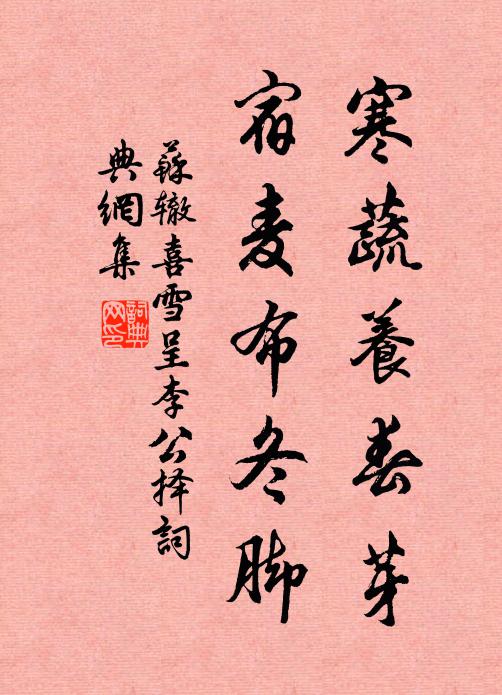 寒蔬養春芽
宿麦布冬脚
蘇辙喜雪呈李公择詞
典網集
詞典网印